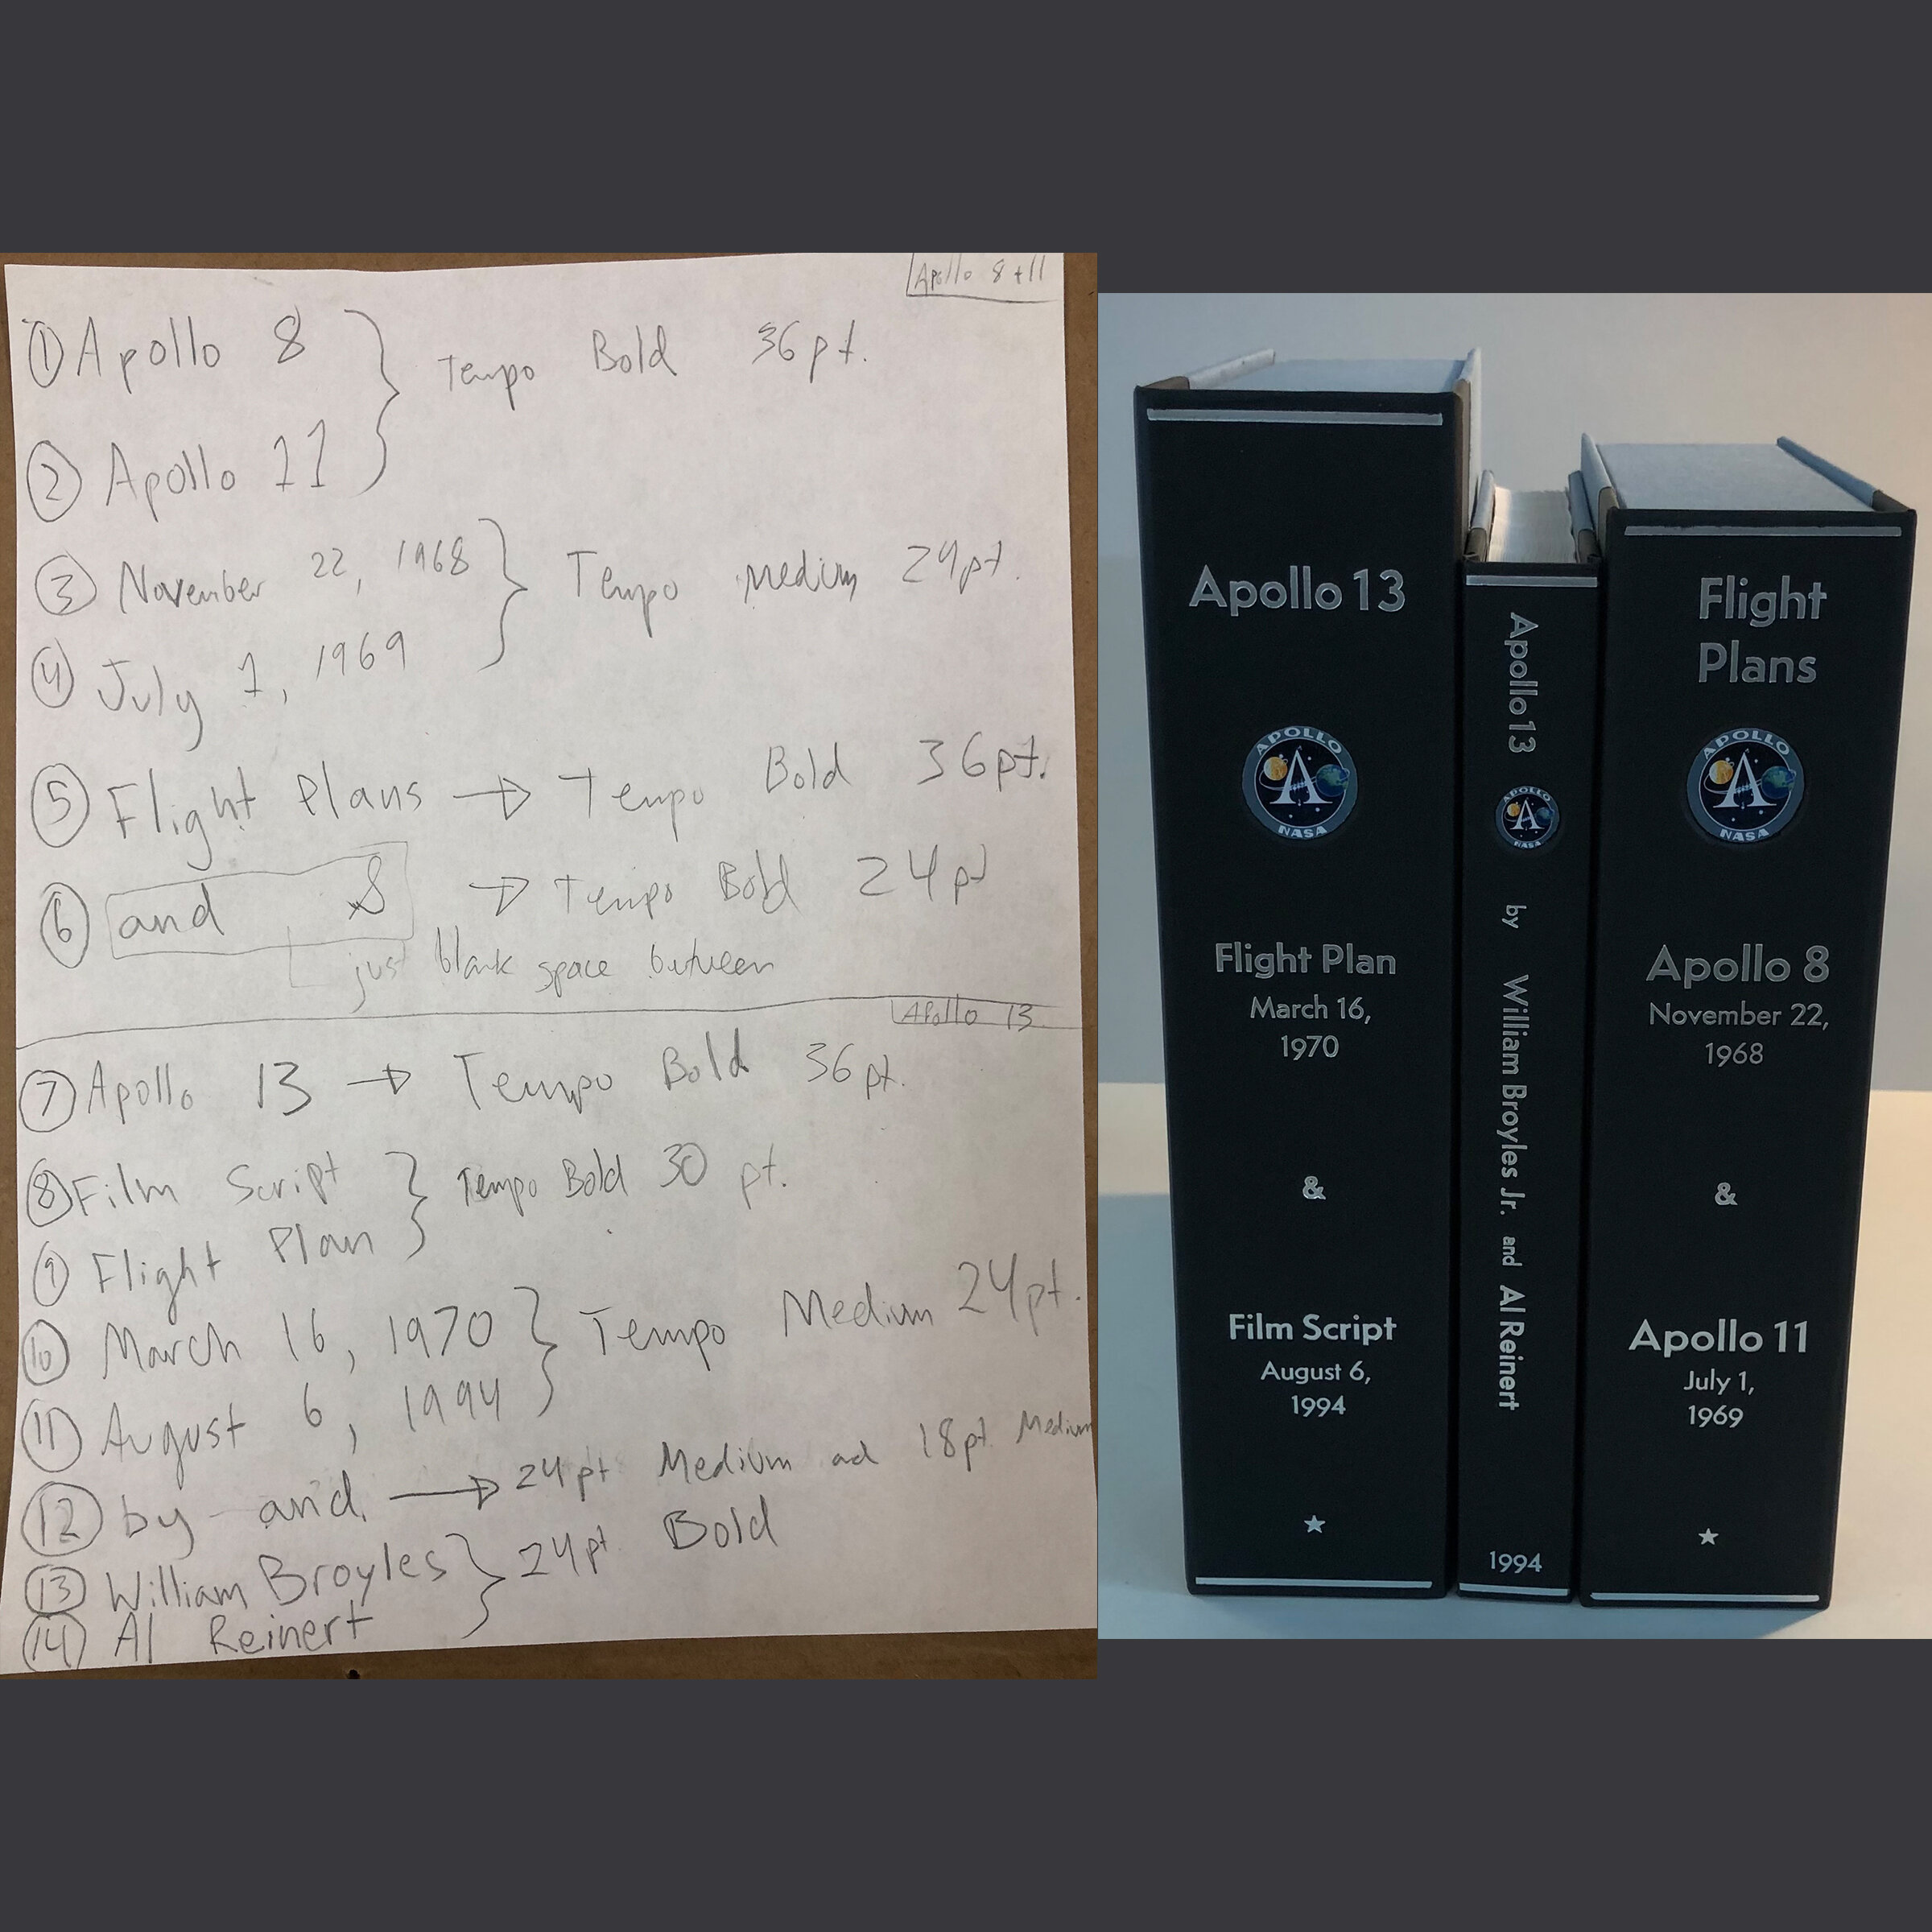 Apollo 8 + 11
① Apollo 8
Tempo Bold 36pt.
② Apollo 11
③ November 22, 1968
Tempo Medium 24pt.
④ July 1, 1969
⑤ Flight Plans → Tempo Bold 36pt.
⑥ and & → Tempo Bold 24pt
just blank space between
Apollo 13
⑦ Apollo 13 → Tempo Bold 36pt.
⑧ Film Script
Tempo Bold 30 pt.
⑨ Flight Plan
⑩ March 16, 1970
Tempo Medium 24pt.
⑪ August 6, 1994
⑫ by and → 24pt Medium ad 18pt. Medium
⑬ William Broyles
24pt. Bold
⑭ Al Reinert
Apollo 13
APOLLO
A
NASA
Flight Plan
March 16,
1970
&
Film Script
August 6,
1994
Apollo 13
APOLLO
A
NASA
by William Broyles Jr. and Al Reinert
1994
Flight
Plans
APOLLO
A
NASA
Apollo 8
November 22,
1968
&
Apollo 11
July 1,
1969